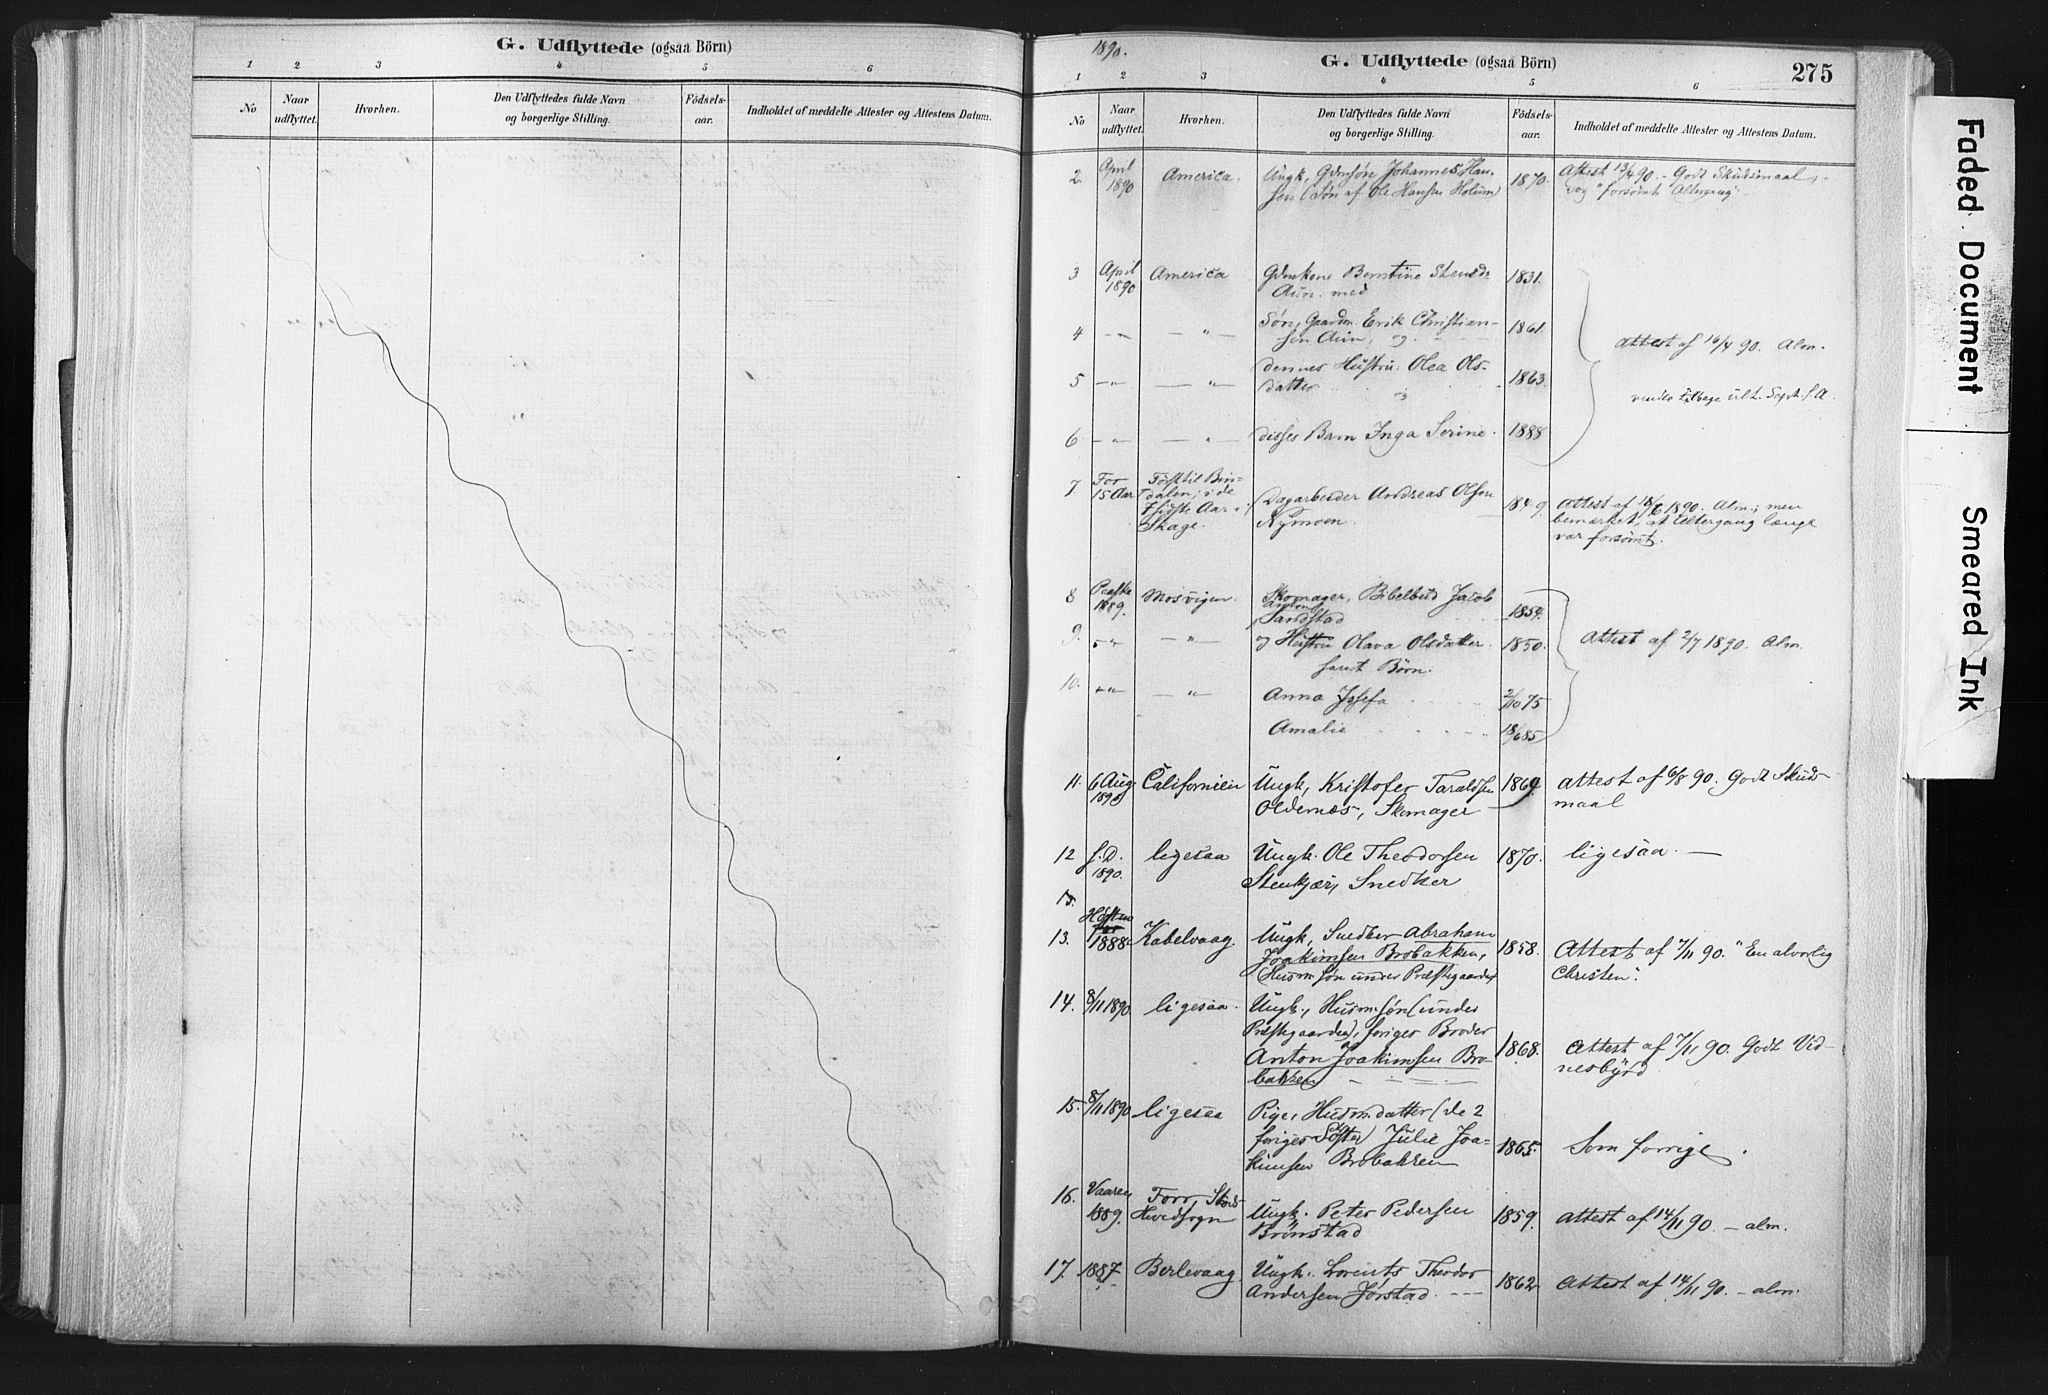 G. Udflyttede (ogsaa Börn)
1 2 3 4 5 6
No
Naar udflyttet.
Hvorhen.
Den Udflyttedes fulde Navn
og borgerlige Stilling.
Födsels-
aar.
Indholdet af meddelte Attester og Attestens Datum.
1890.
G. Udflyttede (ogsaa Börn)
275
1 2 3 4 5 6
No
Naar udflyttet.
Hvorhen.
Den Udflyttedes fulde Navn
og borgerlige Stilling.
Födsels-
aar.
Indholdet af meddelte Attester og Attestens Datum.
2 April 1890 America. Ungk, Gdmsøn Johannes Han-
sen (Søn af Ole Hansen Holum) 1870. Attest 13/4 90. - Godt Skudsmaal,
dog "forsømt Altergang"
3 April 1890 America Gdmkone Berntine
Aun. med 1831.
4 -"- -"- Søn, Gaardm. Erik Christian-
sen Aun, og 1861. Attest af 16/4 90. Alm.
5 -"- -"- dennes Hustru Olea Ols-
datter 1863. vendte tilbage ult. Sept. s. A.
6 -"- -"- disses Barn Inga Serine. 1888
7 For 15 Aar Først til Bin-
dalen, i de
7 sidste Aar i
Skage. Dagarbeider Andreas Olsen
Nymoen. 1849. Attest af 18/6 1890. Alm.; men
bemærket, at Altergang længe
var forsømt.
8 Paaske 1889. Mosvigen. Skomager, Bibelbud Jacob
Sandstad 1854.
9. -"- -"- og Hustru Olava Olsdatter 1850. Attest af 2/7 1890. Alm.
samt Børn.
10. -"- -"- Anna Josefa 2/10 75
Amalie 18/6 85
11. 6 Aug 1890 Californien Ungk, Kristofer Taraldsen
Oldernæs, Skomager 1869 Attest af 6/8 90. Godt Skuds-
maal
12 s. D. 1890. ligesaa Ungk. Ole Theodorsen
Stenkjær, Snedker 1870. ligesaa. —
13.
13. Høsten 1888. Kabelvaag. Ungk, Snedker Abraham
Joakimsen Brobakken,
(Husm. søn under Præstegaarden) 1858. Attest af 7/11 90. "En alvorlig
Christen".
14. 8/11 1890. ligesaa. Ungk., Husm. søn (under
Præstegaarden), foriges Broder
Anton Joakimsen Bro-
bakken 1868. Attest af 7/11 90. Godt Vid-
nesbyrd
15. 8/11 1890 ligesaa Pige, Husm. datter (de 2
foriges Søster) Julie Joa-
kimsen Brobakken 1865. Som forrige.
16. Vaaren 1889. Ungk. Peter Pedersen
Brønstad 1859. Attest af 14/11 90. - alm.
17. 1887. Berlevaag. Ungk. Lorents Theodor
Andersen Jørstad. 1862 Attest af 14/11 90. - alm.
Faded Document
Smeared Ink